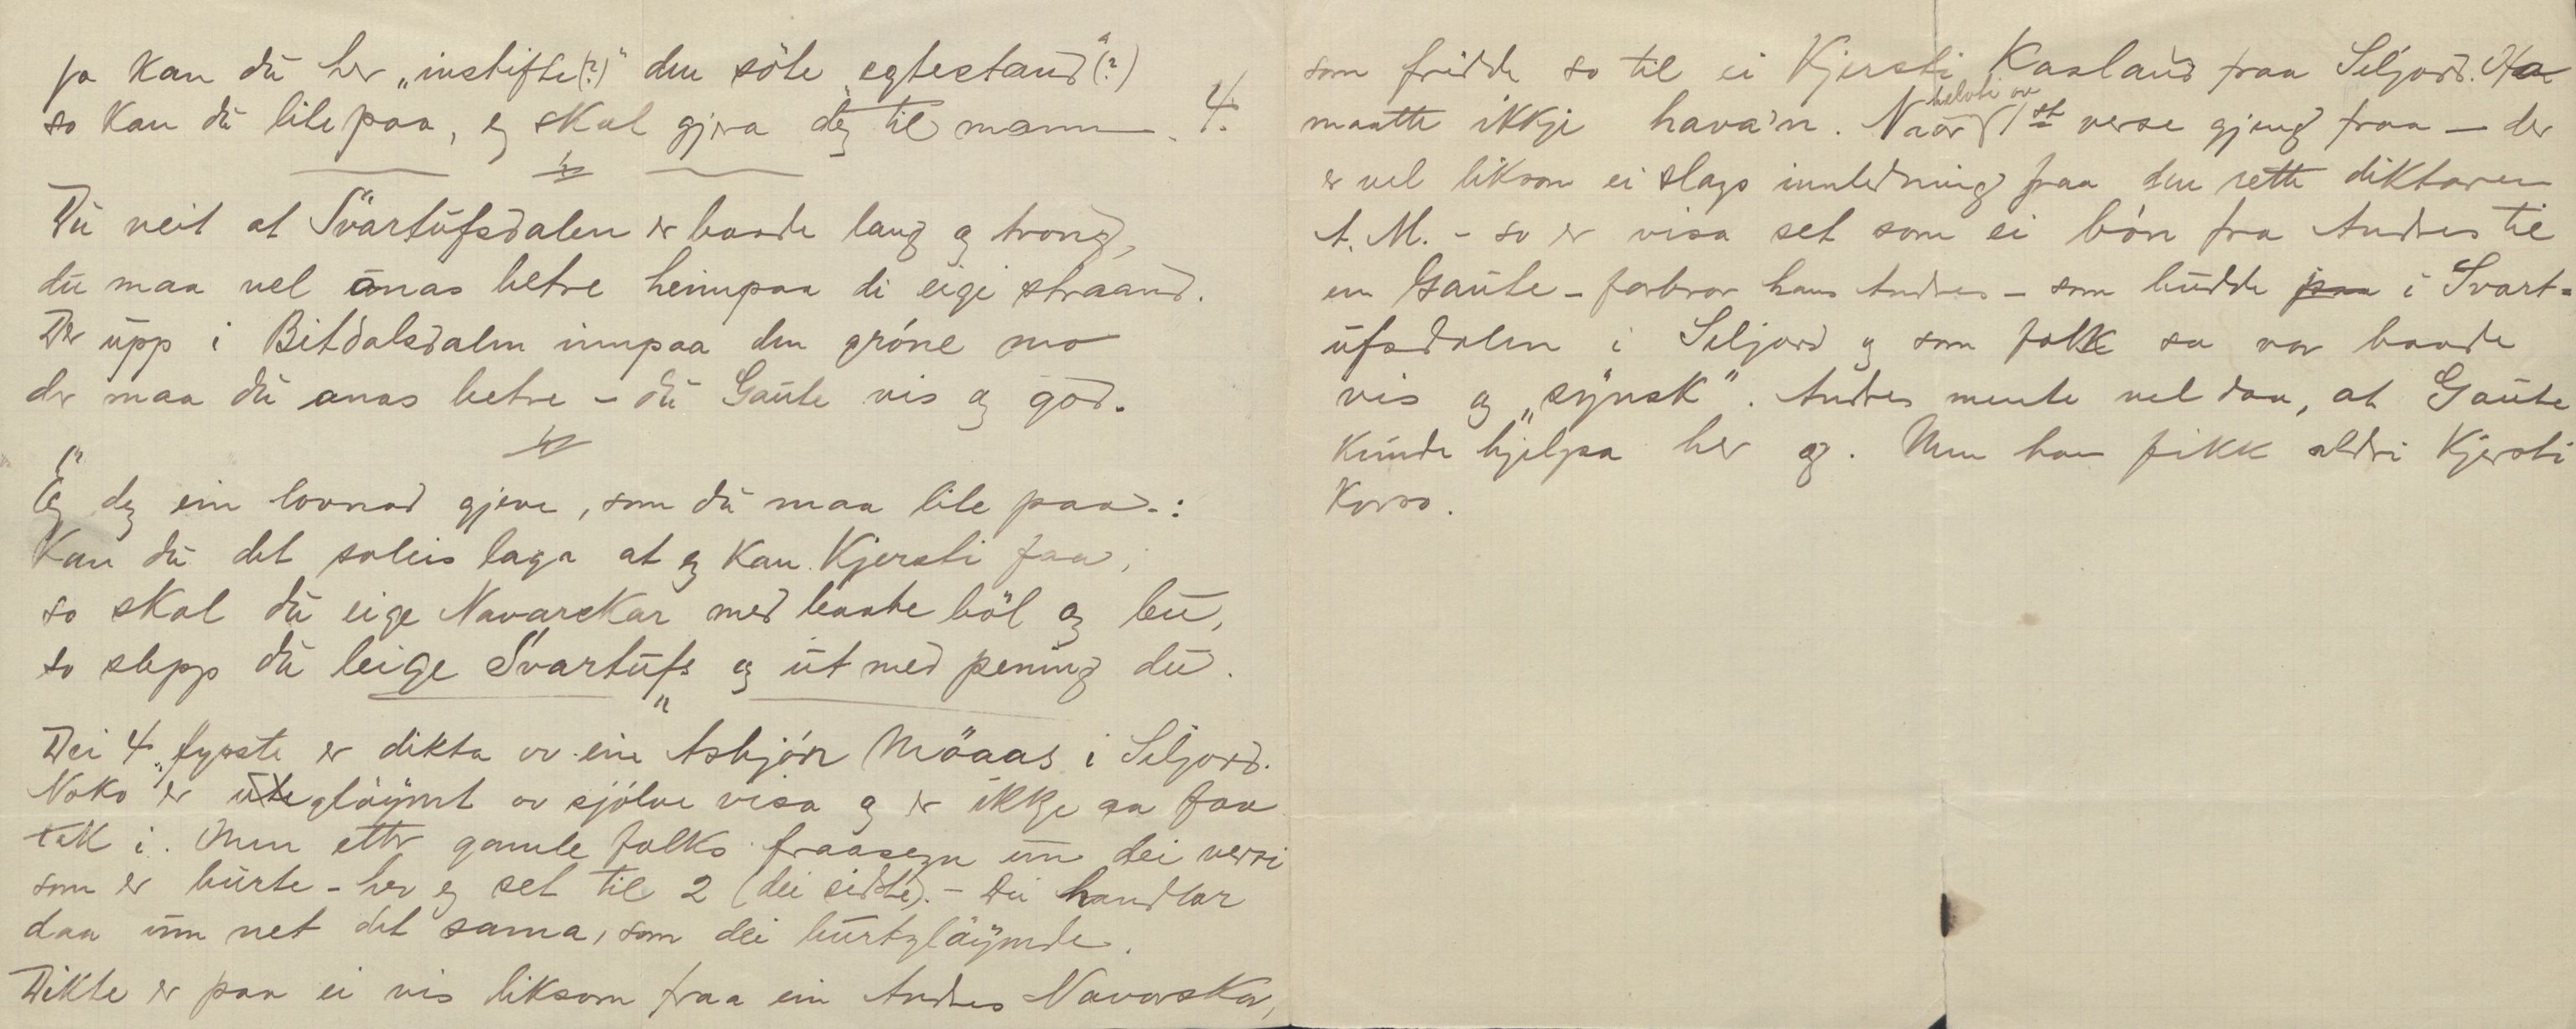 ja kan du her „instifte(?)" den söte „egtestand"(?)
so kan du lite paa, eg skal gjera deg til mann. 4.
Du veit at Svartufsdalen er baade lang og trong,
du maa vel ånas betre heimpaa di eigi straand.
Der upp i Bitdalsdalen innpaa den gröne mo
der maa du anas betre – du Gaute vis og god.
Eg deg ein lovnad gjeve, som du maa lite paa.:
Kan du det soleis laga at eg kan Kjersti faa,
so skal du eige Navarskar med baate böl og bu,
so slepp du leige Svartufs og ut med pening du.
Dei 4 fyrste er dikta ov ein Asbjörn Möaas i Seljord.
Noko er utegløymt ov sjölve visa og er ikkje aa faa
tak i. Men etter gamle folks fraasegn um dei versi
som er burte – hev eg set til 2 (dei sidste). – Dei handlar
daa um net det sama, som dei burtgløymde.
Dikte er paa ei vis liksom fraa ein Andres Navarskar,
som fridde so til ei Kjersti Kaaland fraa Seljord. Ho
maatte ikkje hava'n. Naar helvti ov 1st verse gjeng fraa – der
er vel liksom ei slags innledning fraa den rette diktaren
A. M. – so er visa set som ei bön fra Andres til
en Gaute – farbror hans Andres – som budde paa i Svart=
ufsdalen i Seljord og som folk sa var baade
vis og „synsk". Andres mente vel daa, at Gaute
kunde hjelpa her og. Men han fikk aldri Kjersti
korso.